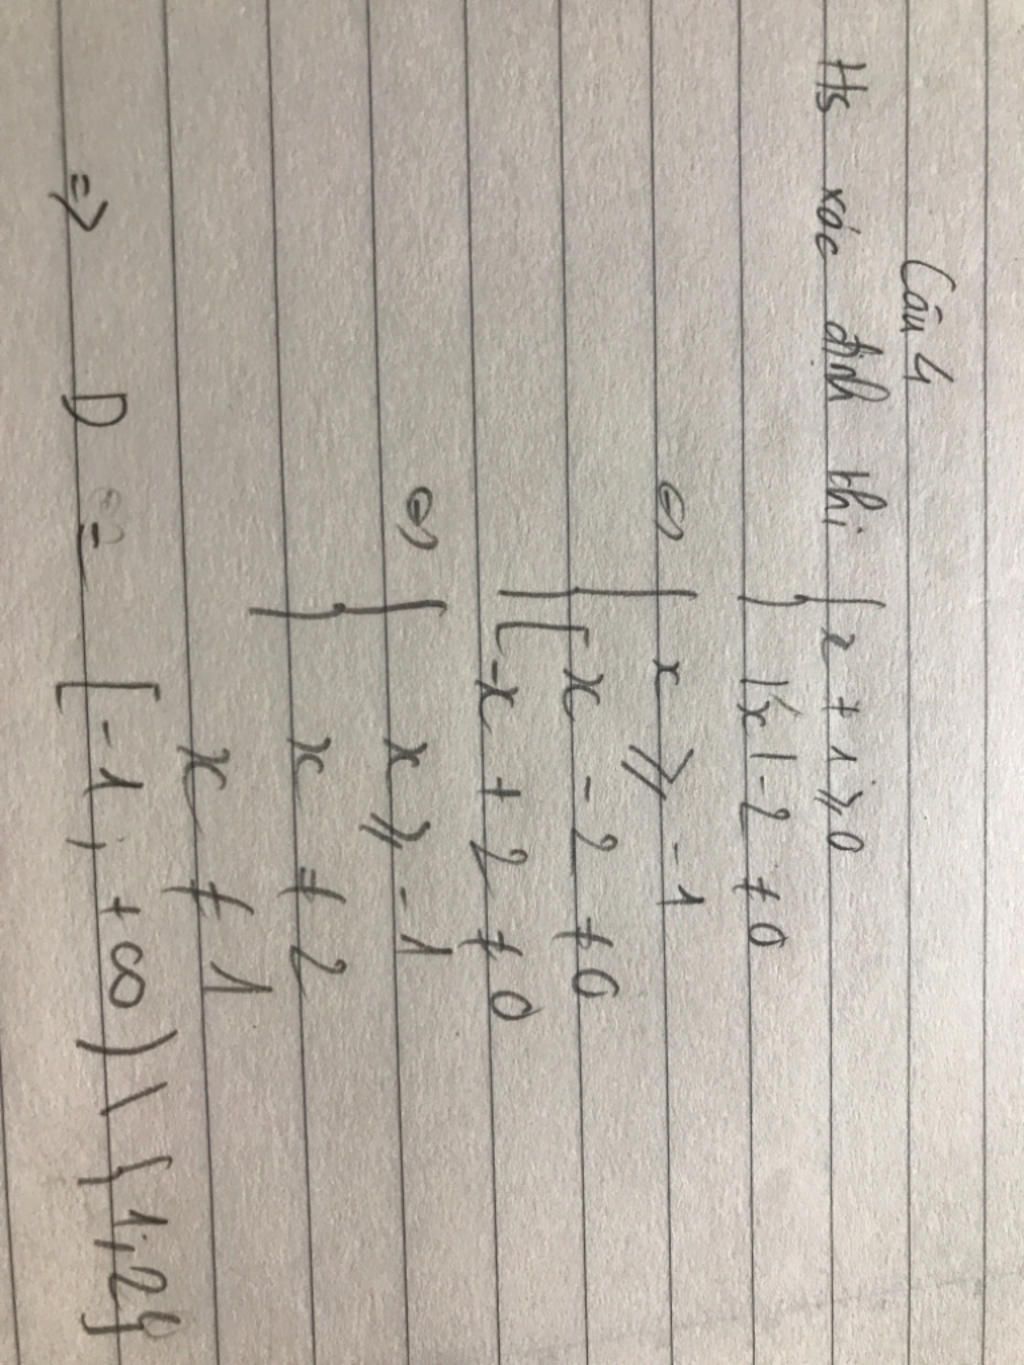 Câu 4
Hs xác định thì { x + 1 ≥ 0
|x| - 2 ≠ 0
⇔ { x ≥ -1
[ x - 2 ≠ 0
-x + 2 ≠ 0
⇔ { x ≥ -1
x ≠ 2
x ≠ 1
=> D = [-1, +∞) \ {1,2}